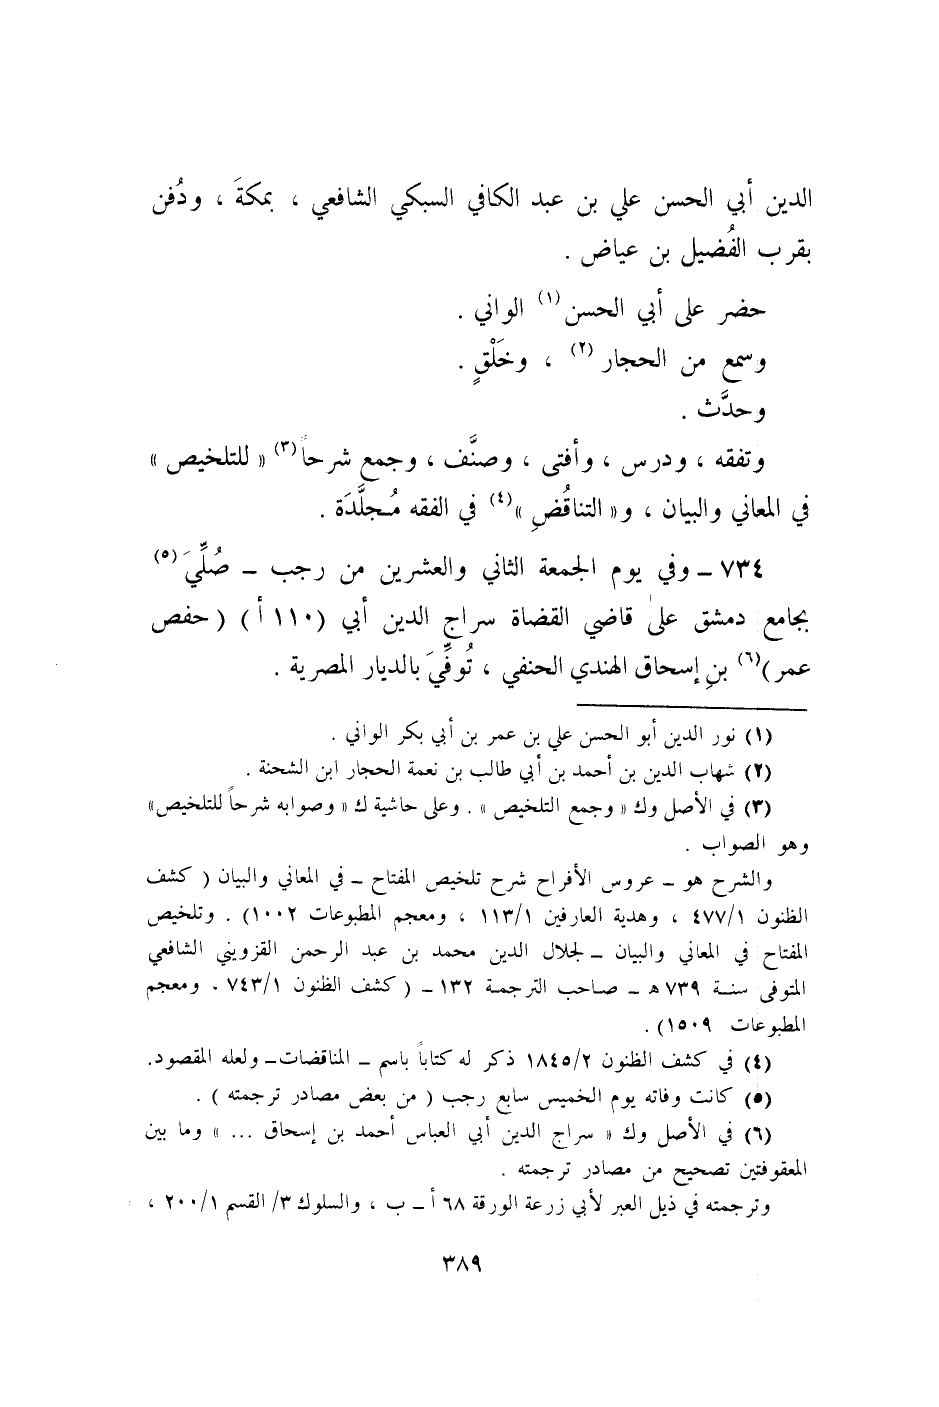 الدين أبي الحسن علي بن عبد الكافي السبكي الشافعي ، بمكةَ ، ودُفن
بقرب الفُضيل بن عياض .
حضر على أبي الحسن (١) الواني .
وسمع من الحجار (٢) ، وخَلْقٍ .
وحدَّث .
وتفقه ، ودرس ، وأفتى ، وصنَّف ، وجمع شرحاً (٣) « للتلخيص »
في المعاني والبيان ، و« التناقُضِ » (٤) في الفقه مُجلَّدَة .
٧٣٤ – وفي يوم الجمعة الثاني والعشرين من رجب – صُلِّيَ (٥)
بجامع دمشق على قاضي القضاة سراج الدين أبي (١١٠ أ ) ( حفص
عمر ) (٦) بنِ إسحاق الهندي الحنفي ، تُوفِّيَ بالديار المصرية .
(١) نور الدين أبو الحسن علي بن عمر بن أبي بكر الواني .
(٢) شهاب الدين بن أحمد بن أبي طالب بن نعمة الحجار ابن الشحنة .
(٣) في الأصل وك « وجمع التلخيص » . وعلى حاشية ك « وصوابه شرحاً للتلخيص»
وهو الصواب .
والشرح هو – عروس الأفراح شرح تلخيص المفتاح – في المعاني والبيان ( كشف
الظنون ٤٧٧/١ ، وهدية العارفين ١١٣/١ ، ومعجم المطبوعات ١٠٠٢) . وتلخيص
المفتاح في المعاني والبيان – لجلال الدين محمد بن عبد الرحمن القزويني الشافعي
المتوفى سنة ٧٣٩ هـ – صاحب الترجمة ١٣٢ – ( كشف الظنون ٧٤٣/١ . ومعجم
المطبوعات ١٥٠٩) .
(٤) في كشف الظنون ١٨٤٥/٢ ذكر له كتاباً باسم – المناقضات – ولعله المقصود.
(٥) كانت وفاته يوم الخميس سابع رجب ( من بعض مصادر ترجمته ) .
(٦) في الأصل وك « سراج الدين أبي العباس أحمد بن إسحاق ... » وما بين
المعقوفتين تصحيح من مصادر ترجمته .
وترجمته في ذيل العبر لأبي زرعة الورقة ٦٨ أ – ب ، والسلوك ٣/ القسم ٢٠٠/١ ،
٣٨٩